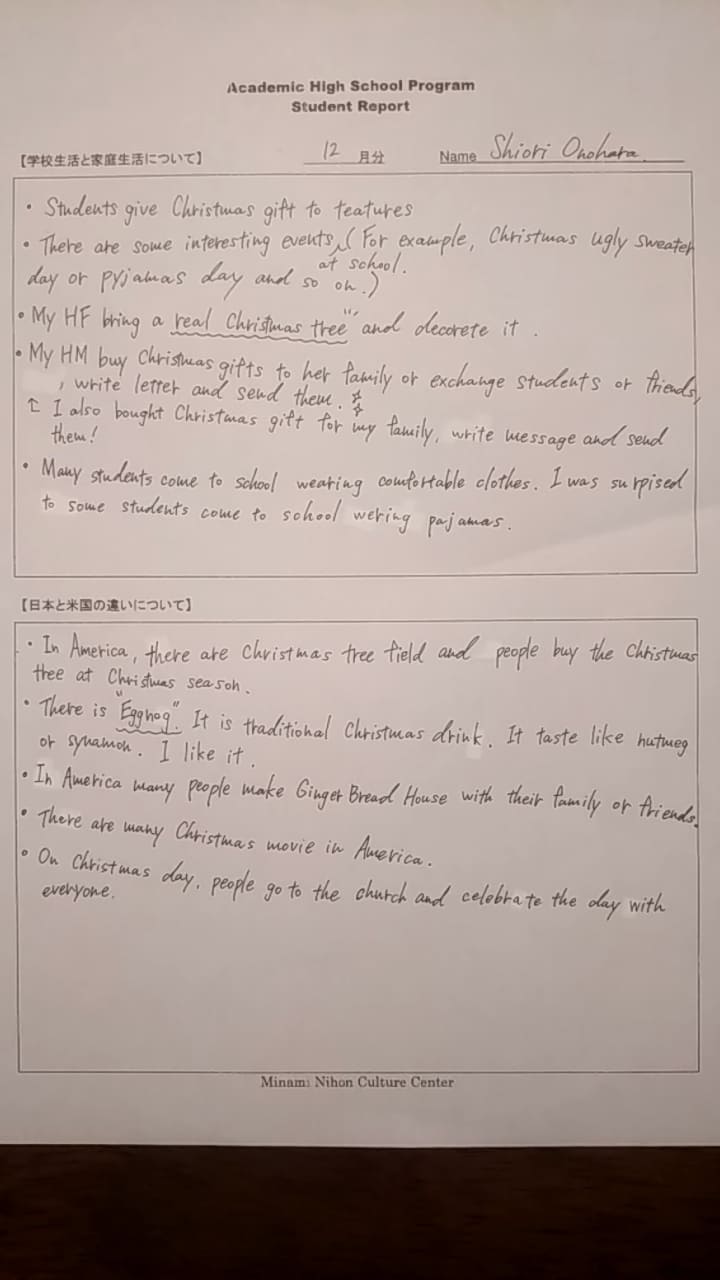 Academic High School Program
Student Report
【学校生活と家庭生活について】 12 月分 Name Shiori Onohara
• Students give Christmas gift to teatures
• There are some interesting events at school. (For example, Christmas ugly sweater
day or pyjamas day and so on.)
• My HF bring a "real Christmas tree" and decorete it.
• My HM buy Christmas gifts to her family or exchange students or friends,
, write letter and send them.
↑ I also bought Christmas gift for my family, write message and send
them!
• Many students come to school wearing comfortable clothes. I was surpised
to some students come to school wering pajamas.
【日本と米国の違いについて】
• In America, there are Christmas tree field and people buy the Christmas
tree at Christmas season.
• There is "Eggnog". It is traditional Christmas drink. It taste like nutmeg
or synamon. I like it.
• In America many people make Ginger Bread House with their family or friends.
• There are many Christmas movie in America.
• On Christmas day, people go to the church and celebrate the day with
everyone.
Minami Nihon Culture Center